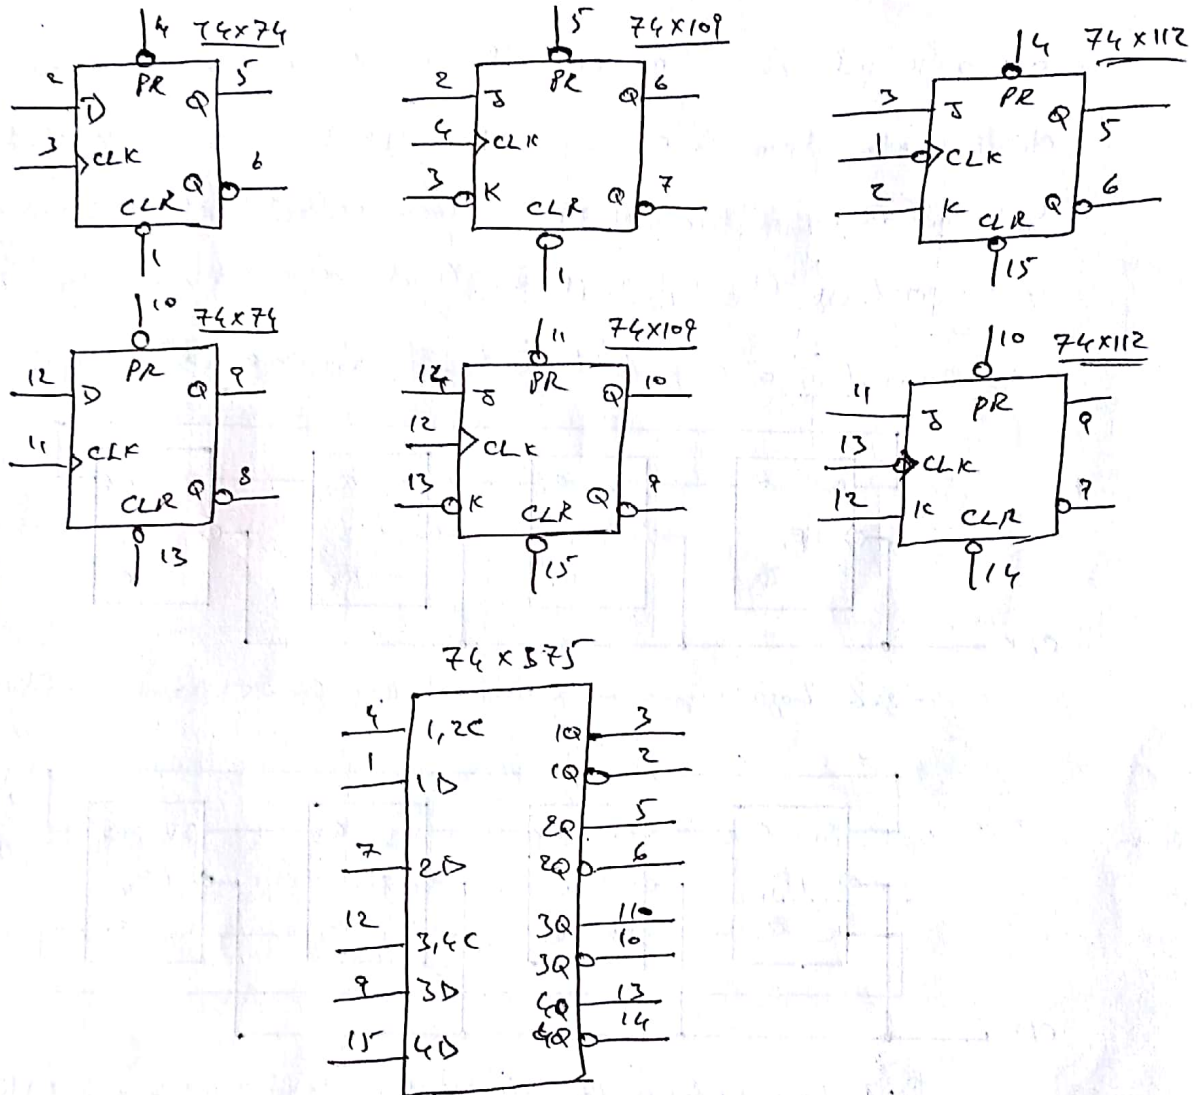 4 74x74
2 D PR Q 5
3 CLK
Q 6
CLR
1
5 74x109
2 J PR Q 6
4 CLK
3 K Q 7
CLR
1
4 74x112
3 J PR Q 5
1 CLK
2 K Q 6
CLR
15
10 74x74
12 D PR Q 9
11 CLK
Q 8
CLR
13
11 74x109
J PR Q 10
12 CLK
13 K Q 9
CLR
15
10 74x112
11 J PR 9
13 CLK
12 K 7
CLR
14
74x375
4 1,2C 1Q 3
1 1D 1Q 2
2Q 5
7 2D 2Q 6
12 3,4C 3Q 11
3Q 10
9 3D 4Q 13
15 4D 4Q 14